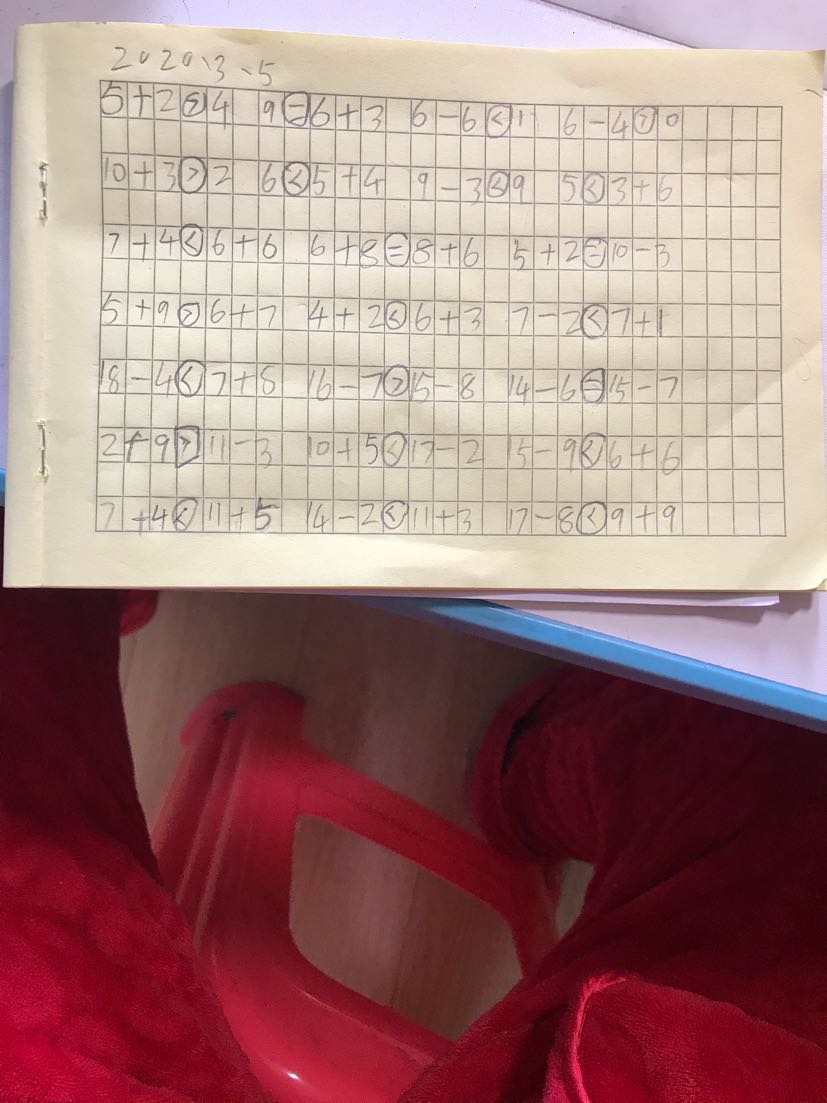 2020、3、5
5+2>4 9=6+3 6-6<1 6-4>0
10+3>2 6<5+4 9-3<9 5<3+6
7+4<6+6 6+8=8+6 5+2=10-3
5+9>6+7 4+2<6+3 7-2<7+1
18-4<7+8 16-7>15-8 14-6=15-7
2+9>11-3 10+5<17-2 15-9<6+6
7+4<11+5 14-2<11+3 17-8<9+9